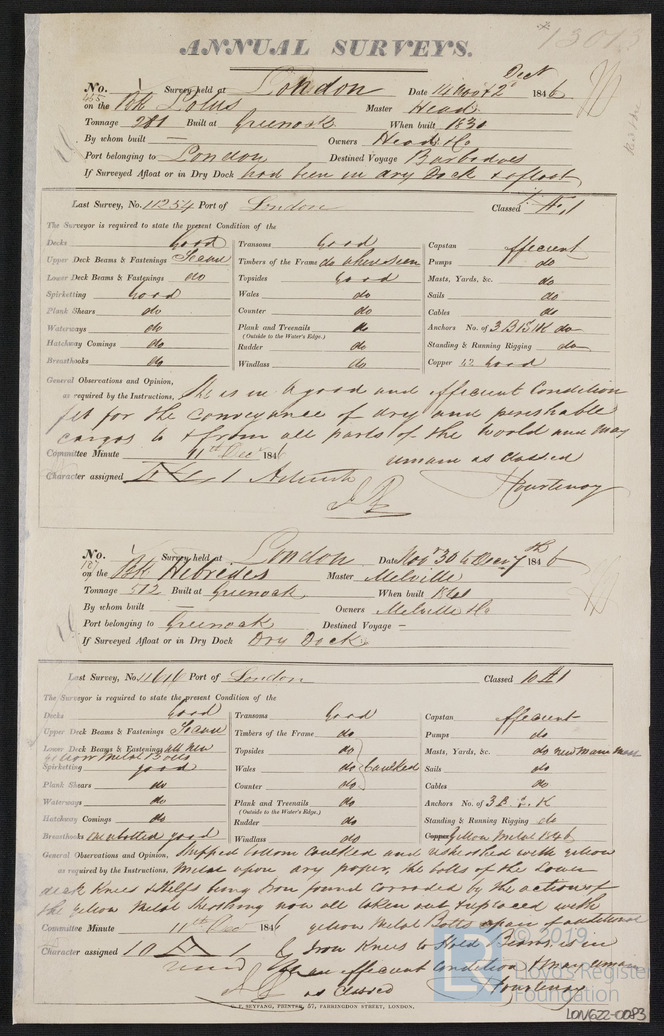 13013
ANNUAL SURVEYS.
No. 1 Survey held at London Date 14 Nov & 2 Decr 1846
on the Bk Lotus Master Head
Tonnage 281 Built at Greenock When built 1830
By whom built — Owners Head & Co
Port belonging to London Destined Voyage Barbadoes
If Surveyed Afloat or in Dry Dock had been in dry Dock & afloat
Last Survey, No. 11254 Port of London Classed
The Surveyor is required to state the present Condition of the
Decks Good Transoms Good Capstan efficient
Upper Deck Beams & Fastenings Timbers of the Frame do where seen Pumps do
Lower Deck Beams & Fastenings do Topsides Good Masts, Yards, &c. do
Spirketting Good Wales do Sails do
Plank Shears do Counter do Cables do
Waterways do Plank and Treenails do Anchors No. of 3 B 1 S 1 K do
(Outside to the Water's Edge.)
Hatchway Comings do Rudder do Standing & Running Rigging do
Breasthooks do Windlass do Copper Good
General Observations and Opinion, She is in a good and efficient Condition
as required by the Instructions, fit for the conveyance of dry and perishable
cargos to & from all parts of the World and may
Committee Minute 11th Decr 1846 remain as classed
Character assigned
Courtenay
No. 1 Survey held at London Date Novr 30 to Decr 7th 1846
127 on the Bk Hebrides Master Melville
Tonnage 512 Built at Greenock When built
By whom built — Owners Melville & Co
Port belonging to Greenock Destined Voyage —
If Surveyed Afloat or in Dry Dock Dry Dock
Last Survey, No. 11616 Port of London Classed 10 A 1
The Surveyor is required to state the present Condition of the
Decks Good Transoms Good Capstan efficient
Upper Deck Beams & Fastenings Timbers of the Frame do Pumps do
Lower Deck Beams & Fastenings all new Topsides do Masts, Yards, &c. do new Main Mast
yellow Metal Bolts
Spirketting good Wales do Caulked Sails do
Plank Shears do Counter do Cables do
Waterways do Plank and Treenails do Anchors No. of 3 B. 1 S. 1 K
(Outside to the Water's Edge.)
Hatchway Comings do Rudder do Standing & Running Rigging do
Breasthooks good Windlass do Copper yellow Metal 1846
General Observations and Opinion, Stripped bottom Caulked and resheathed with yellow
as required by the Instructions, Metal upon dry paper, the bolts of the Lower
deck Knees & Shelfs being Iron found corroded by the action of
the yellow Metal Sheathing now all taken out & replaced with
Committee Minute 11th Decr 1846 yellow Metal Bolts a pair of additional
Character assigned 10 A 1 Iron Knees to Hold Beams is in
an efficient Condition & may remain
as Classed Courtenay
C. F. SEYFANG, PRINTER, 57, FARRINGDON STREET, LONDON.
© 2019
Lloyd's Register
Foundation
LON622-0083